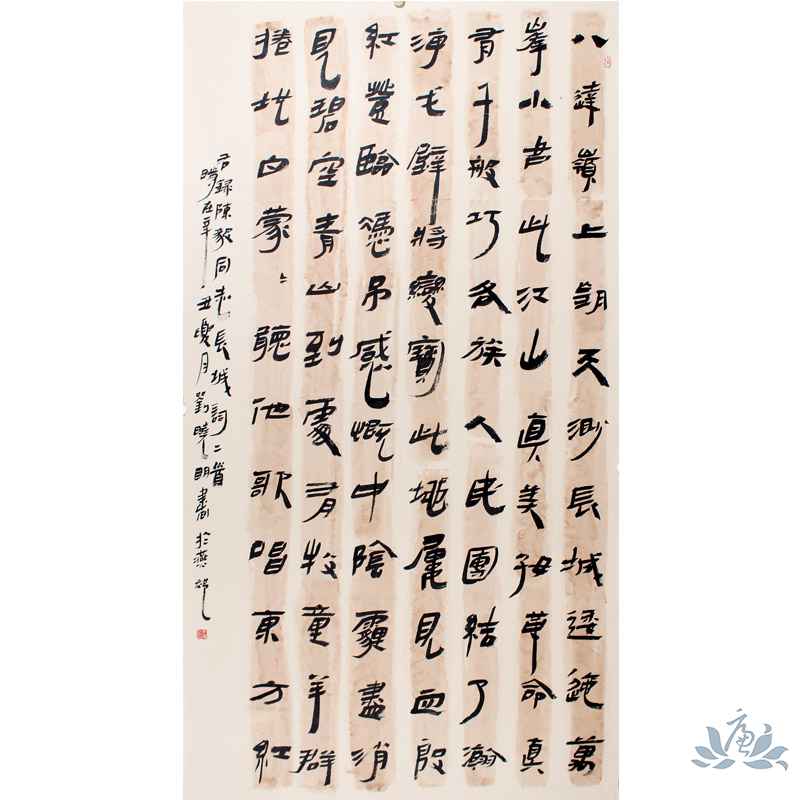 八達嶺上朝天渺長城逶迤萬
峯小看此江山真美好革命真
有千般巧各族人民團結了瀚
海戈壁將變寶此地屢見血殷
紅登臨憑吊感慨中陰霾盡消
見碧空青山到處有牧童羊群
捲地白蒙〻聽他歌唱東方紅
右録陳毅同志長城詞二首
時在辛丑夏月劉曉明書於燕郊